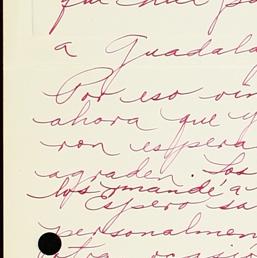 a Guadala
Por eso vin
ahora que y
ron espera
agraden. Los
los mandé a
Espero sa
personalmen
otra ocasió